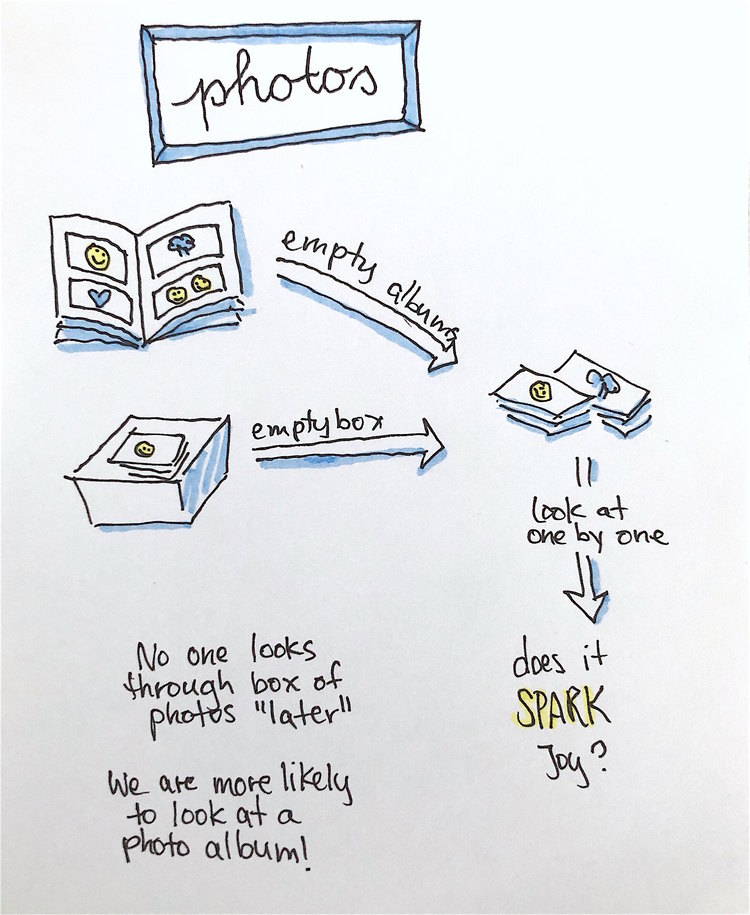 photos
empty albums
empty box
look at
one by one
does it
SPARK
Joy?
No one looks
through box of
photos "later"
We are more likely
to look at a
photo album!